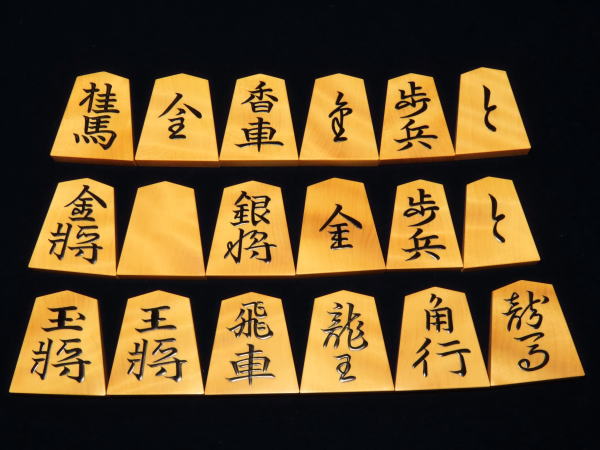 桂馬 全 香車 金 歩兵 と
金将 銀将 全 歩兵 と
玉将 王将 飛車 龍王 角行 龍馬